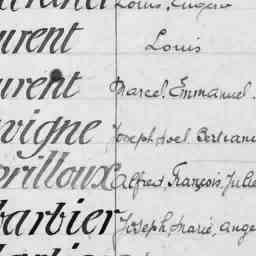 Louis, Eugène
urent Louis
urent Marcel, Emmanuel.
vigne Joseph Noel Bertrand
erilloux Alfred, François, Julie
barbier Joseph, Marie, Ange